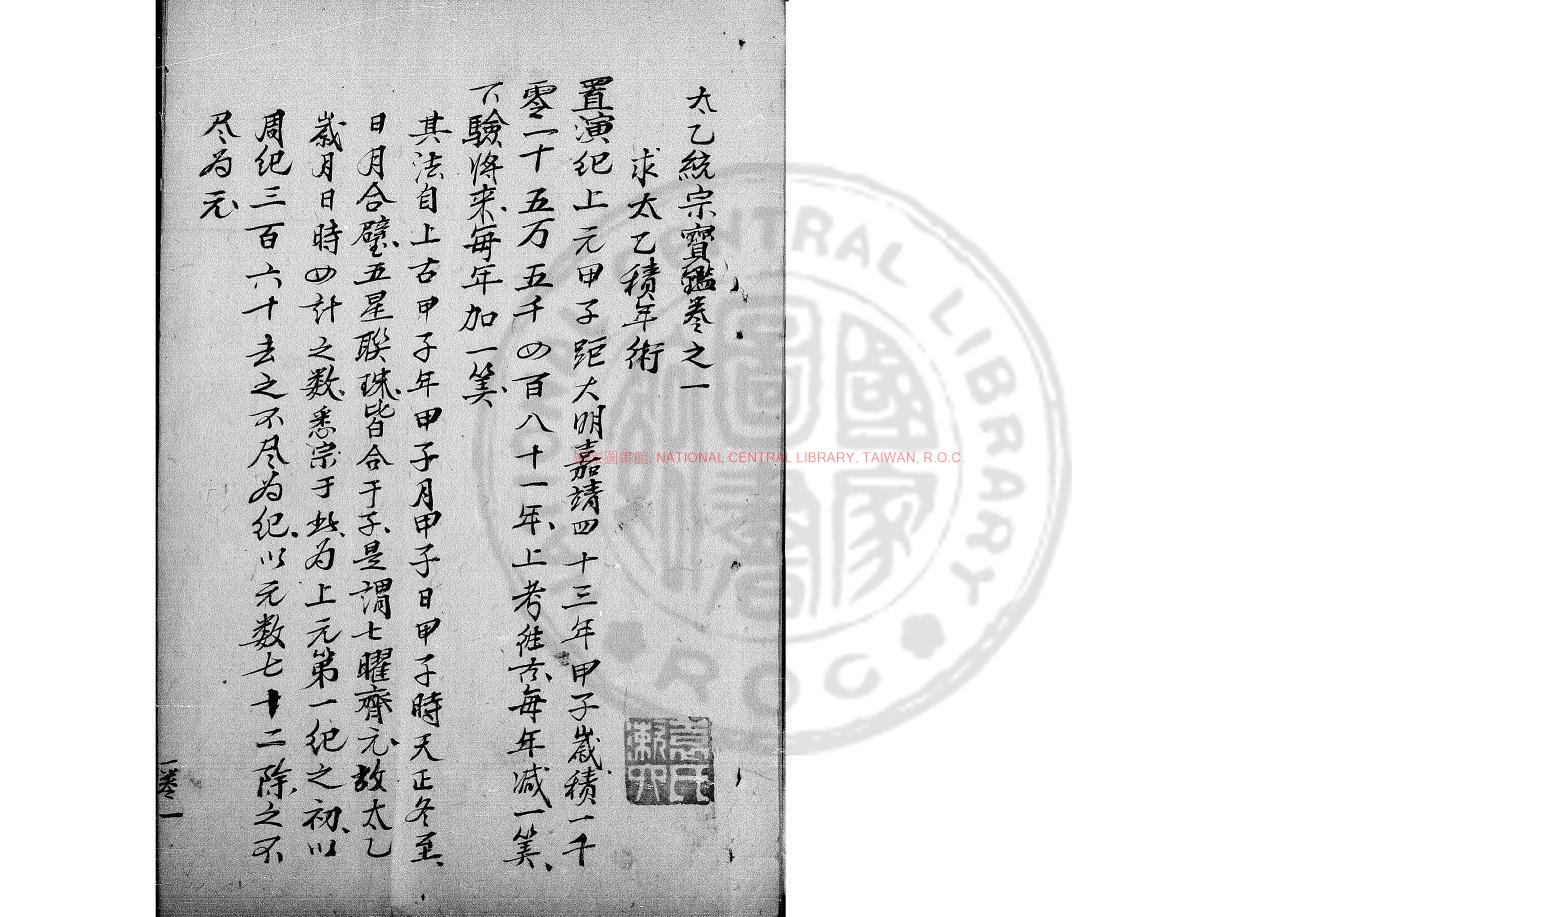 太乙統宗寶鑑卷之一
求太乙積年術
置演纪上元甲子距大明嘉靖四十三年甲子歲積一千
零一十五万五千四百八十一年上考往古每年减一筭
下驗将来每年加一筭
其法自上古甲子年甲子月甲子日甲子時天正冬至
日月合璧五星聯珠皆合于子是謂七曜齊元故太乙
歲月日時四計之数悉宗于此为上元第一纪之初以
周纪三百六十去之不尽为纪以元数七十二除之不
尽为元
卷一
國家圖書館
NATIONAL CENTRAL LIBRARY
R O C
國家圖書館, NATIONAL CENTRAL LIBRARY, TAIWAN, R.O.C.